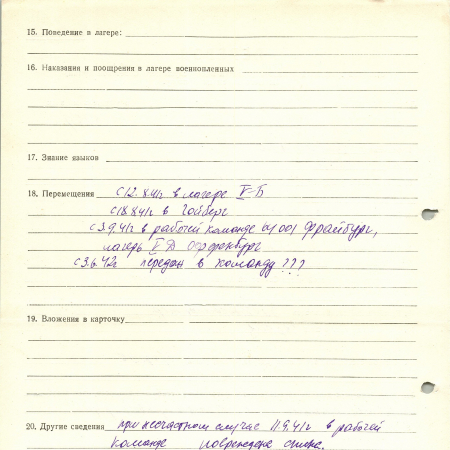 15. Поведение в лагере:
16. Наказания и поощрения в лагере военнопленных
17. Знание языков
18. Перемещения с 12.8.41г в лагере V-Б
с 18.8.41г в Гайберг
с 3.9.41г в рабочей команде 64001 Фрайбург,
лагерь V Д Оффенбург
с 3.6.42г передан в команду ???
19. Вложения в карточку
20. Другие сведения при несчастном случае 11.9.41г в рабочей
команде повреждена спина.